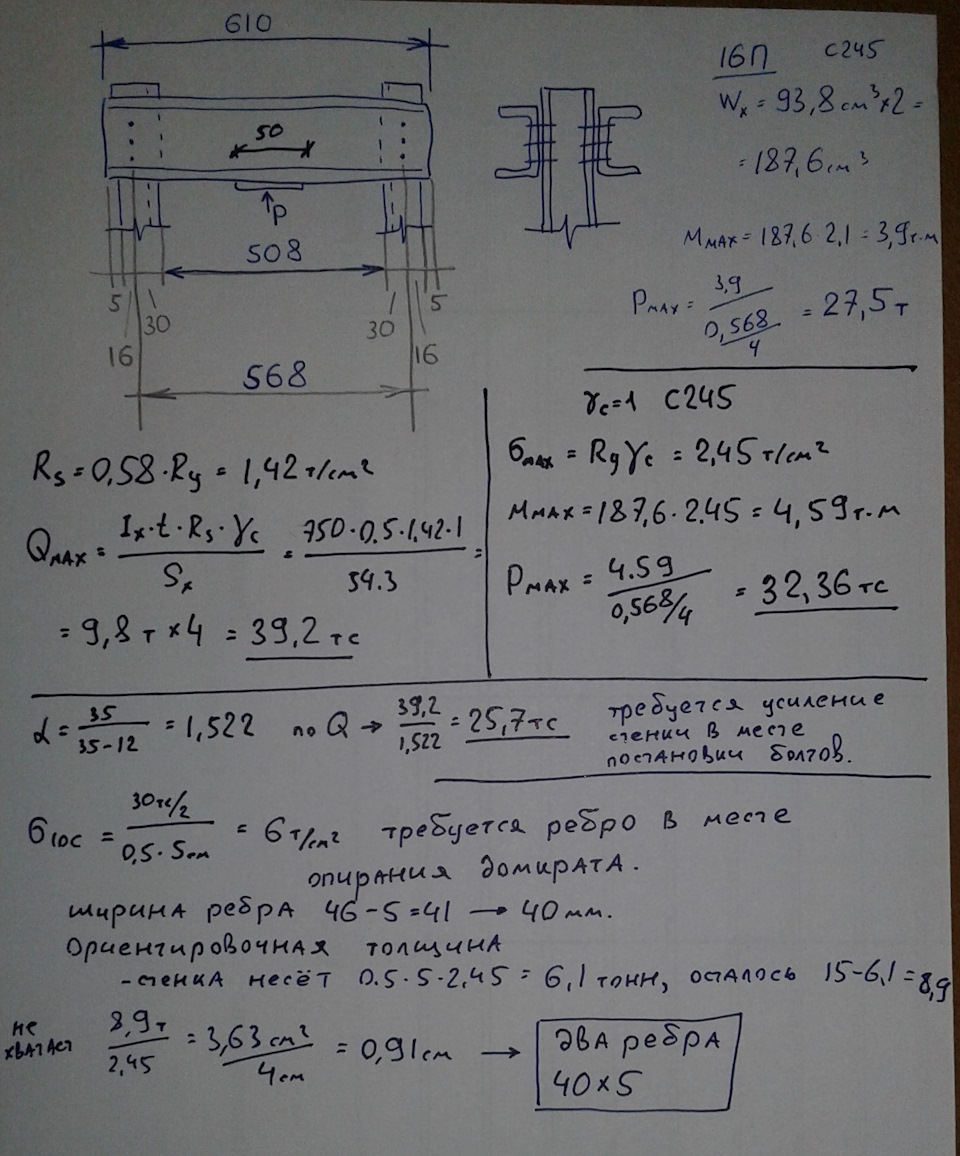 610
50
P
508
5
30
16
30
5
16
568
16П С245
Wx = 93,8 см³ × 2 =
= 187,6 см³
Mмах = 187,6 · 2,1 = 3,9 т·м
Pмах = 3,9 / (0,568/4) = 27,5 т
γc = 1 С245
σмах = Ryγc = 2,45 т/см²
Mмах = 187,6 · 2.45 = 4,59 т·м
Pмах = 4.59 / (0,568/4) = 32,36 тс
Rs = 0,58 · Ry = 1,42 т/см²
Qмах = (Ix · t · Rs · γc) / Sx = (750 · 0.5 · 1,42 · 1) / 54.3 =
= 9,8 т × 4 = 39,2 тс
α = 35 / (35-12) = 1,522 по Q → 39,2 / 1,522 = 25,7 тс
требуется усиление
стенки в месте
постановки болтов.
σloc = (30 тс/2) / (0,5 · 5 см) = 6 т/см² требуется ребро в месте
опирания домкрата.
ширина ребра 46 - 5 = 41 → 40 мм.
ориентировочная толщина
- стенка несёт 0.5 · 5 · 2,45 = 6,1 тонн, осталось 15 - 6,1 = 8,9
не
хватает
8,9 т / 2,45 = 3,63 см² / 4 см = 0,91 см →
два ребра
40×5